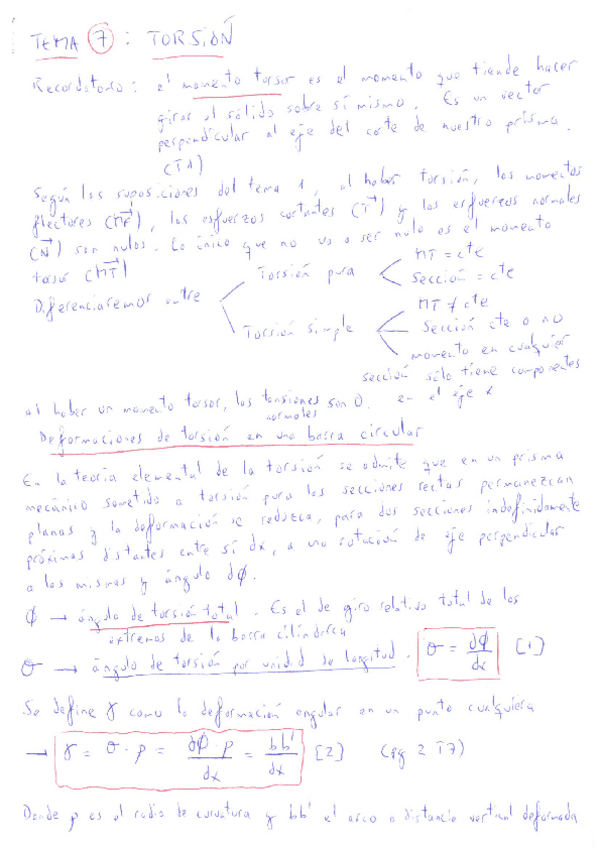 TEMA 7 : TORSIÓN
Recordatorio : el momento torsor es el momento que tiende hacer
girar al sólido sobre sí mismo. Es un vector
perpendicular al eje del corte de nuestro prisma.
(T1)
Según las suposiciones del tema 1, al haber torsión, los momentos
flectores (MF), los esfuerzos cortantes (T) y los esfuerzos normales
(N) son nulos. Lo único que no va a ser nulo es el momento
torsor (MT)
Diferenciaremos entre
Torsión pura
MT = cte
Sección = cte
Torsión simple
MT ≠ cte
Sección cte o no
momento en cualquier
sección sólo tiene componentes
en el eje x
al haber un momento torsor, las tensiones normales son 0.
Deformaciones de torsión en una barra circular
En la teoría elemental de la torsión se admite que en un prisma
mecánico sometido a torsión pura las secciones rectas permanezcan
planas y la deformación se reduzca, para dos secciones indefinidamente
próximas distantes entre sí dx, a una rotación de eje perpendicular
a las mismas y ángulo dϕ.
ϕ → ángulo de torsión total. Es el de giro relativo total de los
extremos de la barra cilíndrica
θ → ángulo de torsión por unidad de longitud. θ = dϕ/dx [1]
Se define γ como la deformación angular en un punto cualquiera
→ γ = θ · ρ = dϕ · ρ/dx = bb'/dx [2] (pg 2 T7)
Donde ρ es el radio de curvatura y bb' el arco o distancia vertical deformada